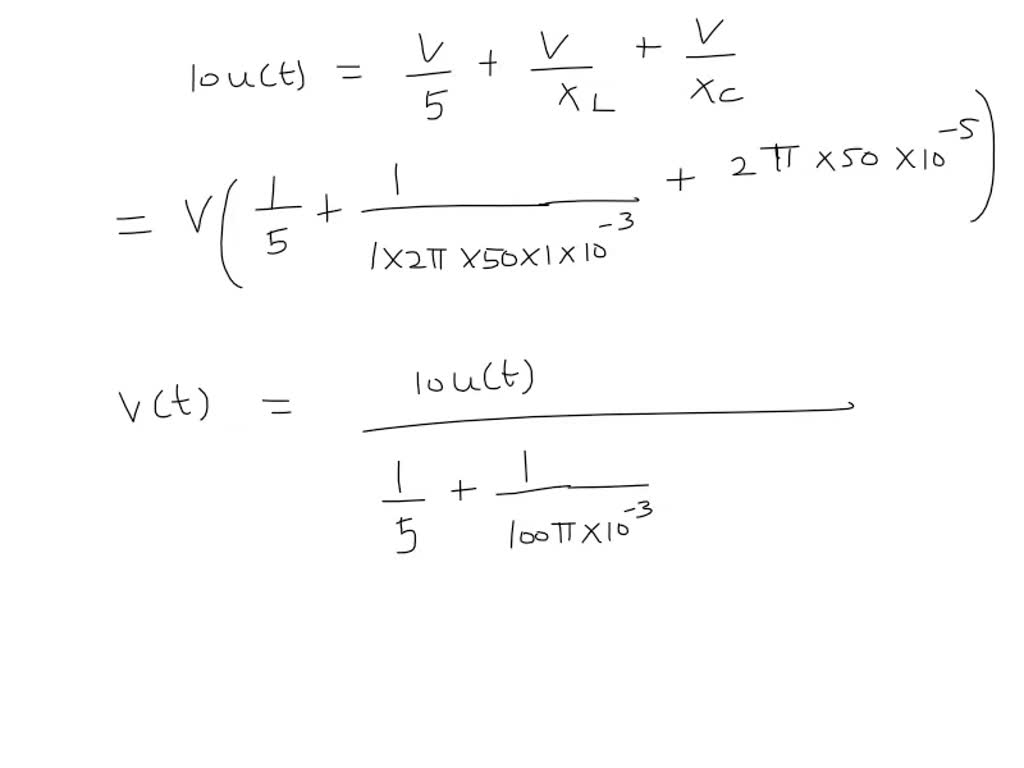 10u(t) = V/5 + V/XL + V/XC
= V(1/5 + 1/(1×2π×50×1×10^-3) + 2π×50×10^-5)
V(t) = 10u(t)/(1/5 + 1/(100π×10^-3))